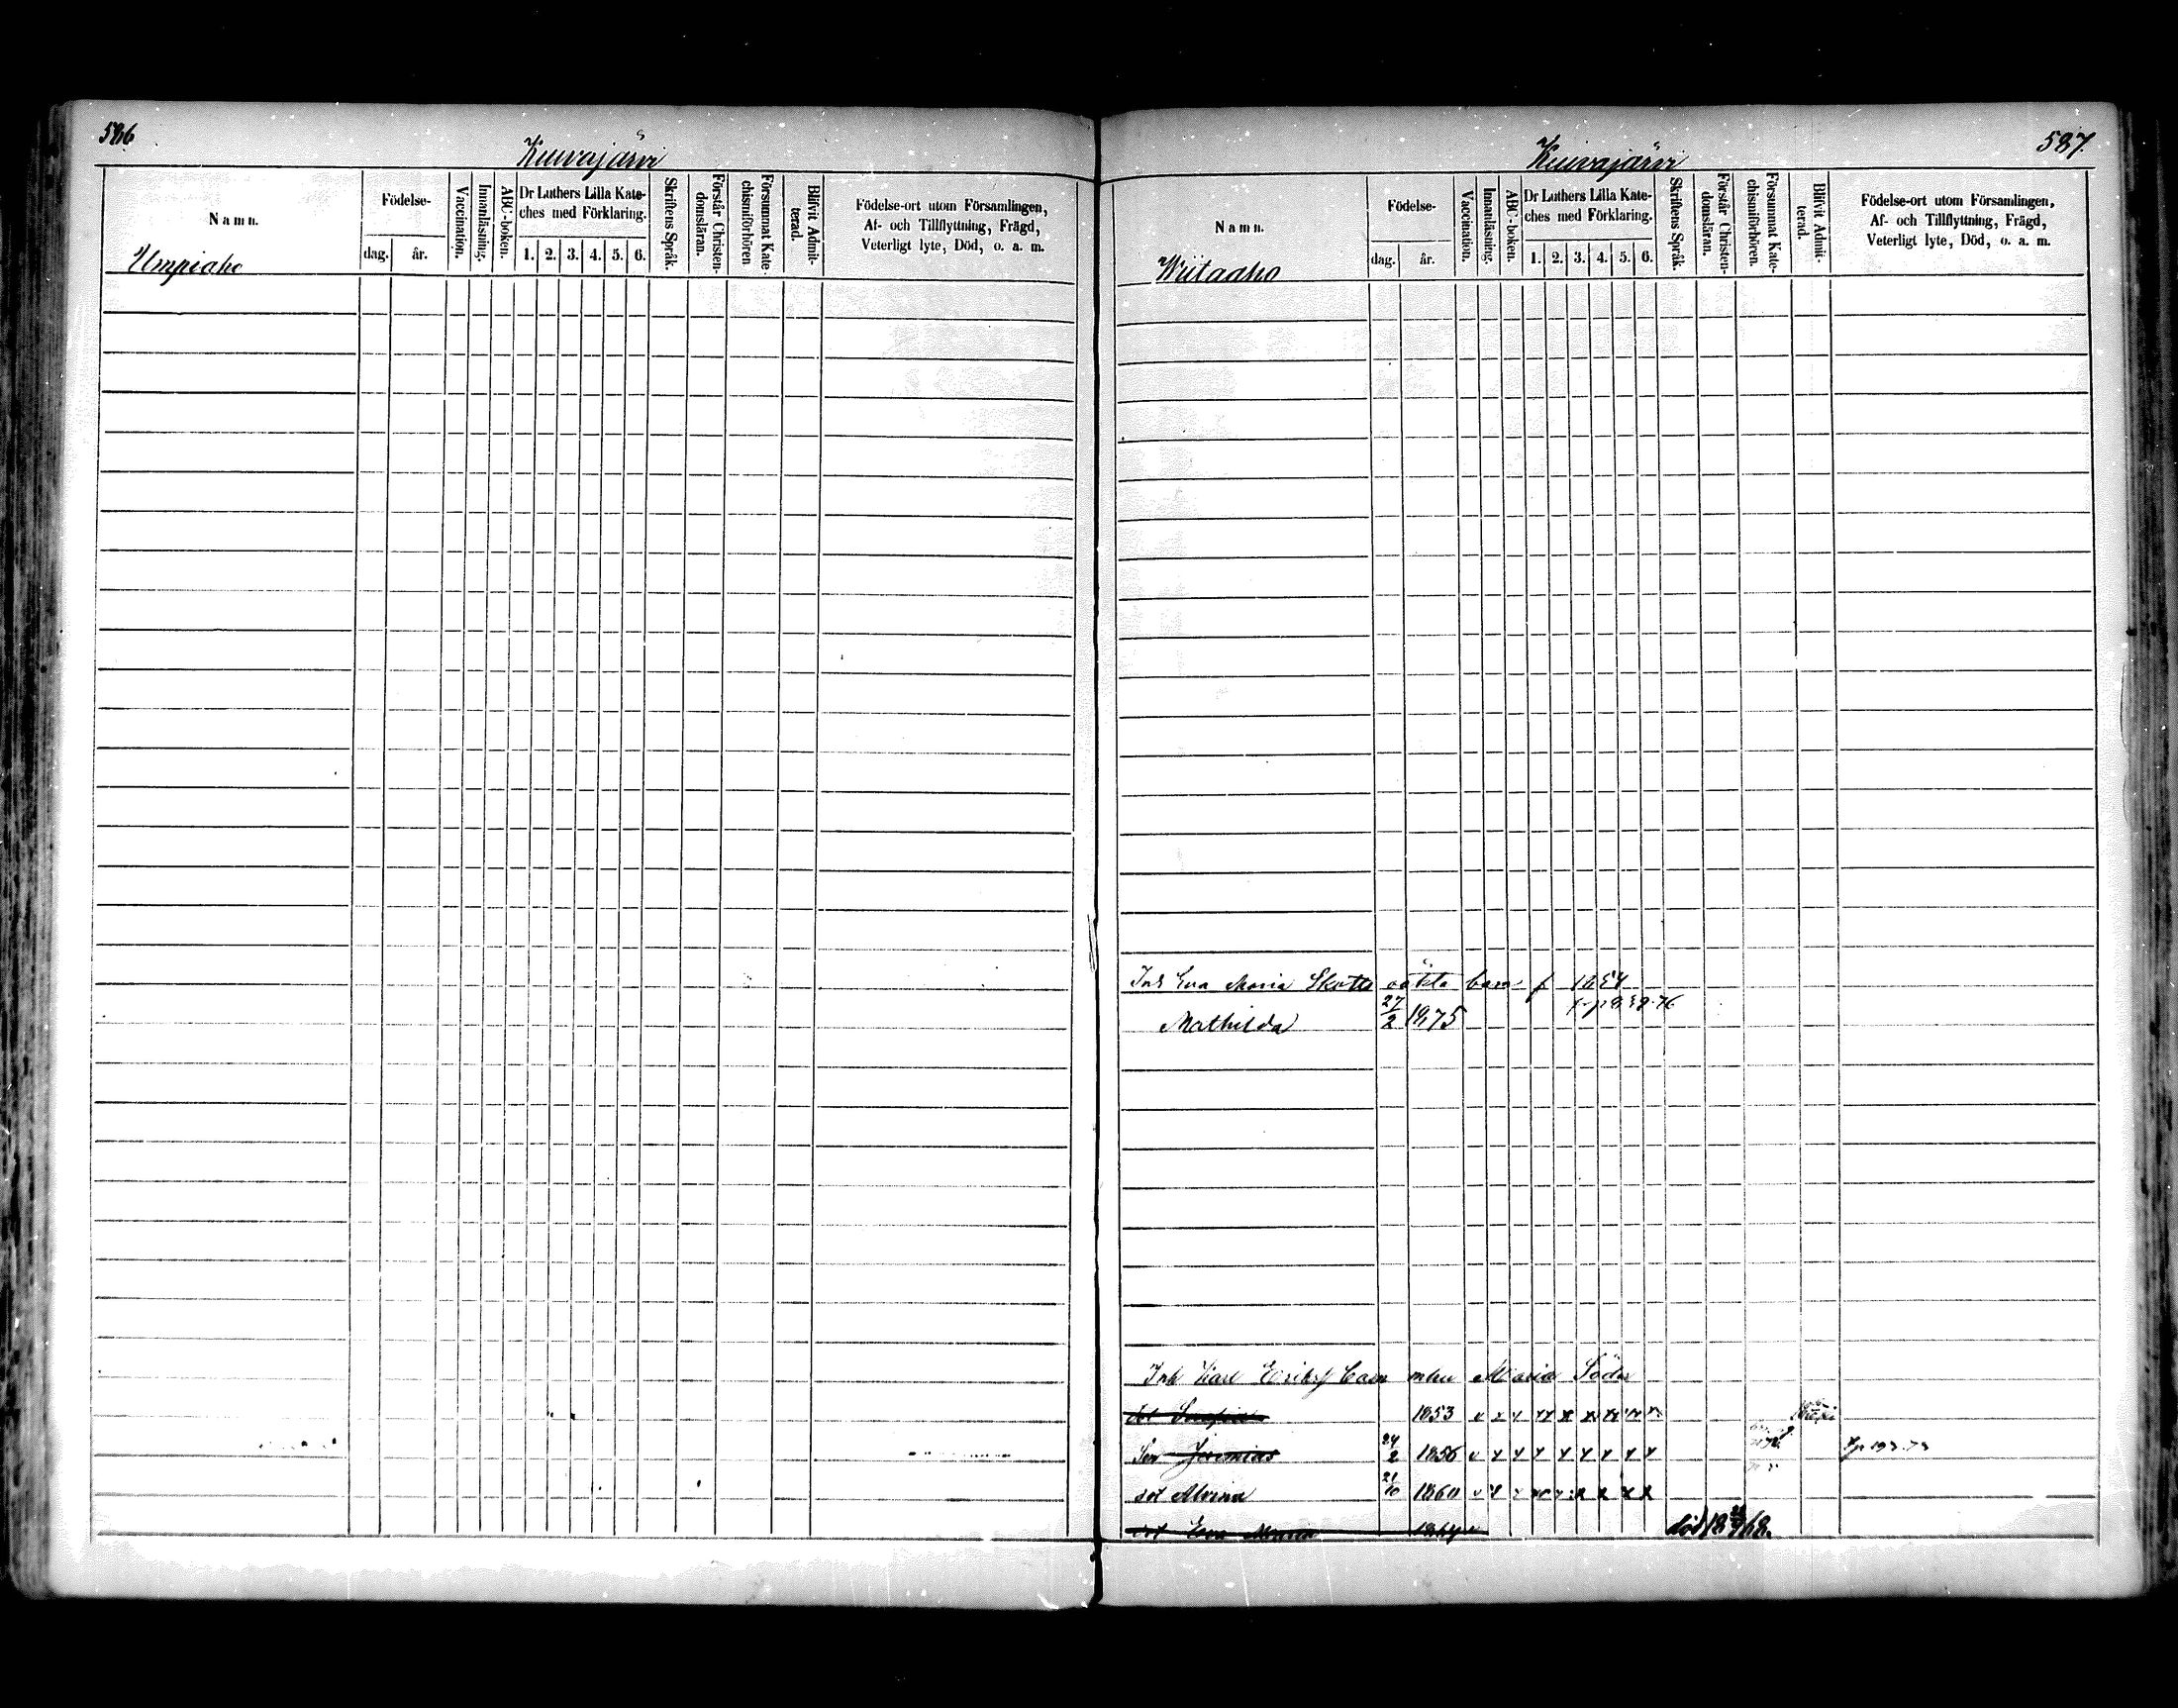 586
Kuivajärvi
Namn.
Födelse-
dag.
år.
Vaccination.
Innanläsning.
ABC-boken.
Dr Luthers Lilla Kate-
ches med Förklaring.
1. 2. 3. 4. 5. 6.
Skriftens Språk.
Förstår Christen-
domsläran.
Försummat Kate-
chismiförhören
Blifvit Admit-
terad.
Födelse-ort utom Församlingen,
Af- och Tillflyttning, Frägd,
Veterligt lyte, Död, o. a. m.
Umpiaho
587.
Kuivajärvi
Namn.
Födelse-
dag.
år.
Vaccination.
Innanläsning.
ABC-boken.
Dr Luthers Lilla Kate-
ches med Förklaring.
1. 2. 3. 4. 5. 6.
Skriftens Språk.
Förstår Christen-
domsläran.
Försummat Kate-
chismiförhören.
Blifvit Admit-
terad.
Födelse-ort utom Församlingen,
Af- och Tillflyttning, Frägd,
Veterligt lyte, Död, o. a. m.
Wiitaaho
Inh Eva Maria Skott oäkta barn f 1854
Mathilda 27/2 1875
Inh Karl Eriks barn Maria Söder
dot Serafia 1853
Son Jeremias 24/2 1856
dot Alvina 21/10 1860
dot Eva Maria död